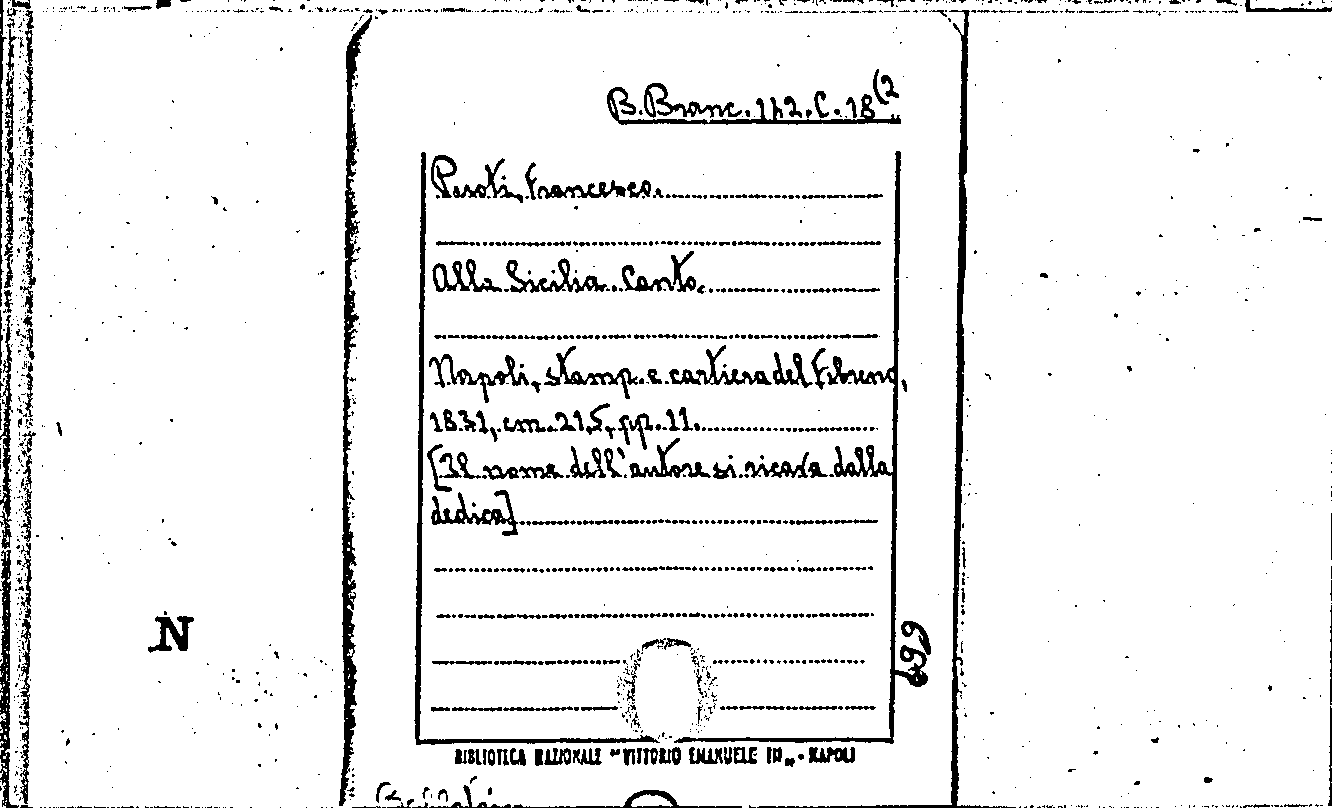 B. Branc. 142. C. 18(2
Perotti, Francesco.
Alla Sicilia. Canto.
Napoli, stamp. e cartiera del Fibreno,
1831, cm. 21,5, pp. 11.
[Il nome dell'autore si ricava dalla
dedica]
N
699
BIBLIOTECA NAZIONALE "VITTORIO EMANUELE III" - NAPOLI